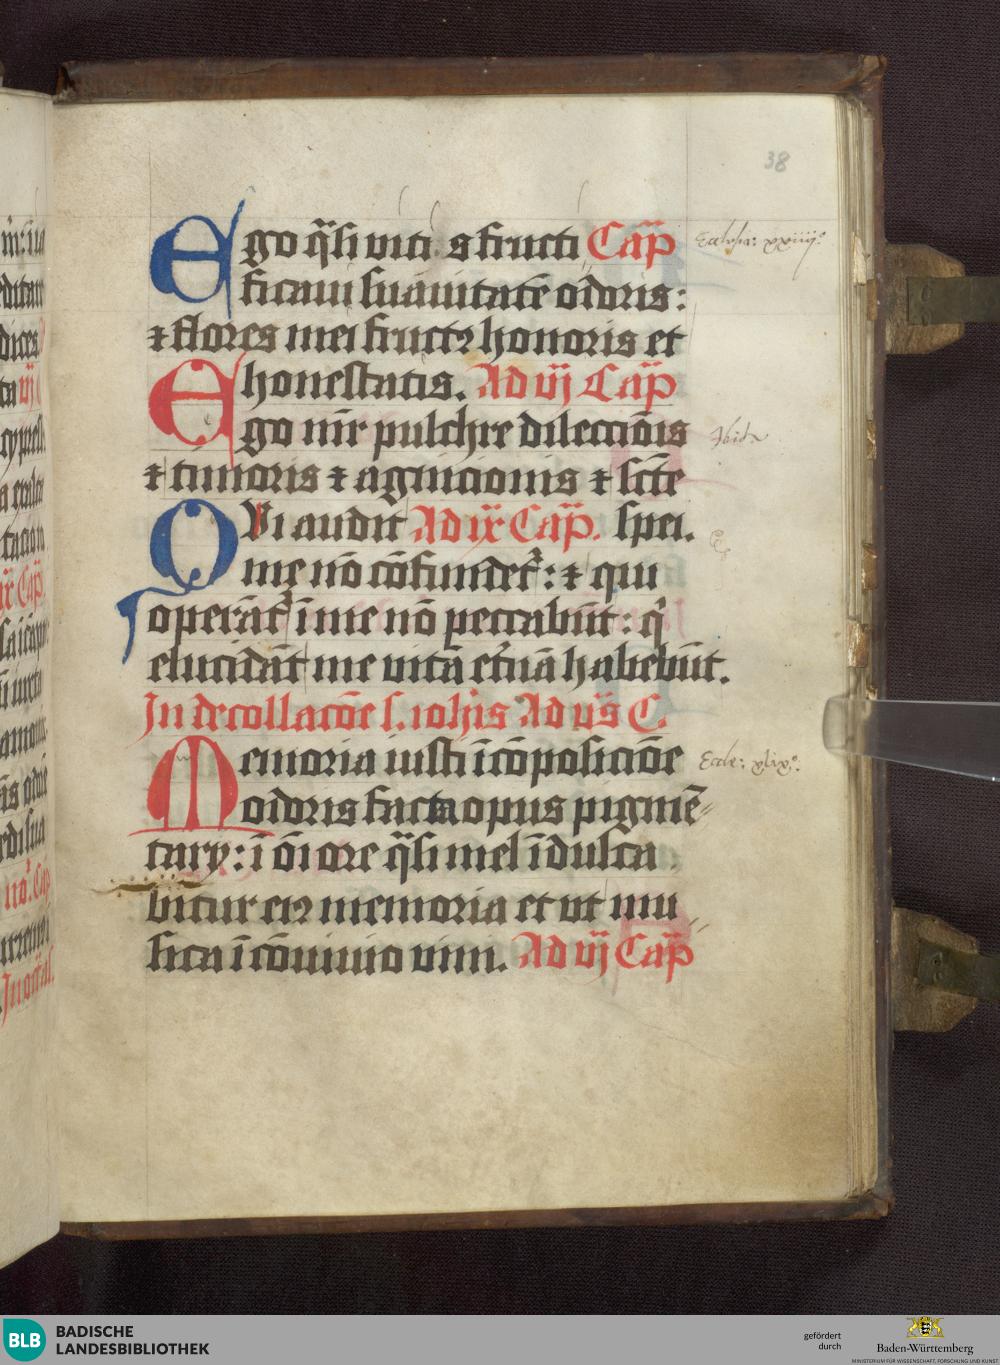 38
Ego q̃si viti s fructi Cap̃
ficaui suauitatē odoris:
⁊ flores mei fructꝰ honoris et
honestatis. Ad vj Cap̃
Ego mr̄ pulchre dilecciōis
⁊ timoris ⁊ agnicionis ⁊ sc̄te
spei.
QVi audit Ad ix Cap̃.
me nō cōfundet᷑: ⁊ qui
operāt᷑ ī me nō peccabūt: q̇
elucidāt me vitā et̄nā habebūt.
In decollacōe s. ioh̄is Ad vs̄ C.
Memoria iusti ī cōposiciōe
odoris facta opus pigmē
tarij: ī ōi ore q̃si mel īdulca
bitur eiꝰ memoria et ut mu
sica ī cōuiuio vini. Ad vj Cap̃
xxiiij°
Ibid
Eccle: xlix°:
BLB BADISCHE
LANDESBIBLIOTHEK
gefördert
durch
Baden-Württemberg
MINISTERIUM FÜR WISSENSCHAFT, FORSCHUNG UND KUNST